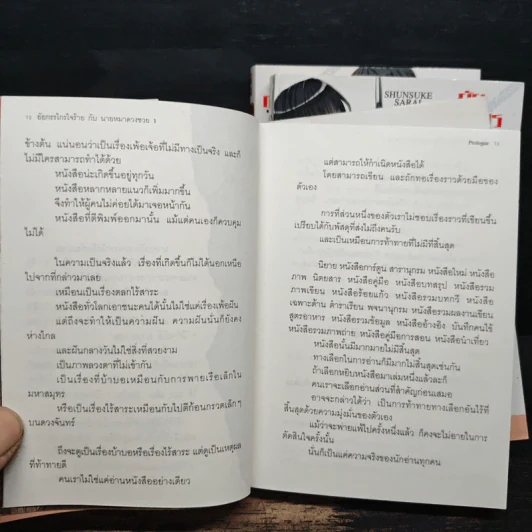 SHUNSUKE
SARAI
12 อัยกรรไกรใจร้าย กับ นายหมาดวงซวย 1
ข้างต้น แน่นอนว่าเป็นเรื่องเพ้อเจ้อที่ไม่มีทางเป็นจริง และก็
ไม่มีใครสามารถทำได้ด้วย
หนังสือน่ะเกิดขึ้นอยู่ทุกวัน
หนังสือหลากหลายแนวก็เพิ่มมากขึ้น
จึงทำให้ผู้คนไม่ค่อยได้มาเจอหน้ากัน
หนังสือที่ตีพิมพ์ออกมานั้น แม้แต่คนเองก็ควบคุม
ไม่ได้
ในความเป็นจริงแล้ว เรื่องที่เกิดขึ้นก็ไม่ได้นอกเหนือ
ไปจากที่กล่าวมาเลย
เหมือนเป็นเรื่องตลกไร้สาระ
หนังสือทั่วโลกเอาชนะคนได้นั้นไม่ใช่แค่เรื่องเพ้อฝัน
แต่ถึงจะทำให้เป็นความฝัน ความฝันนั้นก็ยังคง
ห่างไกล
และฝันกลางวันไม่ใช่สิ่งที่สวยงาม
เป็นภาพลวงตาที่ไม่เข้ากัน
เป็นเรื่องที่บ้าบอเหมือนกับการพายเรือเล็กใน
มหาสมุทร
หรือเป็นเรื่องไร้สาระเหมือนกับไปตีก้อนกรวดเล็กๆ
บนดวงจันทร์
ถึงจะดูเป็นเรื่องบ้าบอหรือเรื่องไร้สาระ แต่ดูเป็นเหตุผล
ที่ท้าทายดี
คนเราไม่ใช่แค่อ่านหนังสืออย่างเดียว
Prologue 13
แต่สามารถให้กำเนิดหนังสือได้
โดยสามารถเขียน และถักทอเรื่องราวด้วยมือของ
ตัวเอง
การที่ส่วนหนึ่งของตัวเราไม่ชอบเรื่องราวที่เขียนขึ้น
เปรียบได้กับพัสดุที่ส่งไม่ถึงคนรับ
และเป็นเหมือนการท้าทายที่ไม่มีที่สิ้นสุด
นิยาย หนังสือการ์ตูน สารานุกรม หนังสือใหม่ หนังสือ
ภาพ นิตยสาร หนังสือคู่มือ หนังสือบทสรุป หนังสือรวม
ภาพเขียน หนังสือร้อยแก้ว หนังสือรวมบทกวี หนังสือ
เฉพาะด้าน ตำราเรียน พจนานุกรม หนังสือรวมผลงานเขียน
สูตรอาหาร หนังสือรวมข้อมูล หนังสืออ้างอิง บันทึกคนใช้
หนังสือรวมภาพถ่าย หนังสือคู่มือการสอน หนังสือนำเที่ยว
หนังสือนั้นมีมากมายไม่มีสิ้นสุด
ทางเลือกในการอ่านก็มีมากไม่มีสิ้นสุดเช่นกัน
ถ้าเลือกหยิบหนังสือมาเล่มหนึ่งแล้วละก็
คนเราจะเลือกอ่านส่วนที่สำคัญก่อนเสมอ
อาจจะกล่าวได้ว่า เป็นการท้าทายทางเลือกอันไร้ที่
สิ้นสุดด้วยความมุ่งมั่นของตัวเอง
แม้ว่าจะพ่ายแพ้ไปครั้งหนึ่งแล้ว ก็คงจะไม่อายในการ
ตัดสินใจครั้งนั้น
นั่นก็เป็นแค่ความจริงของนักอ่านทุกคน